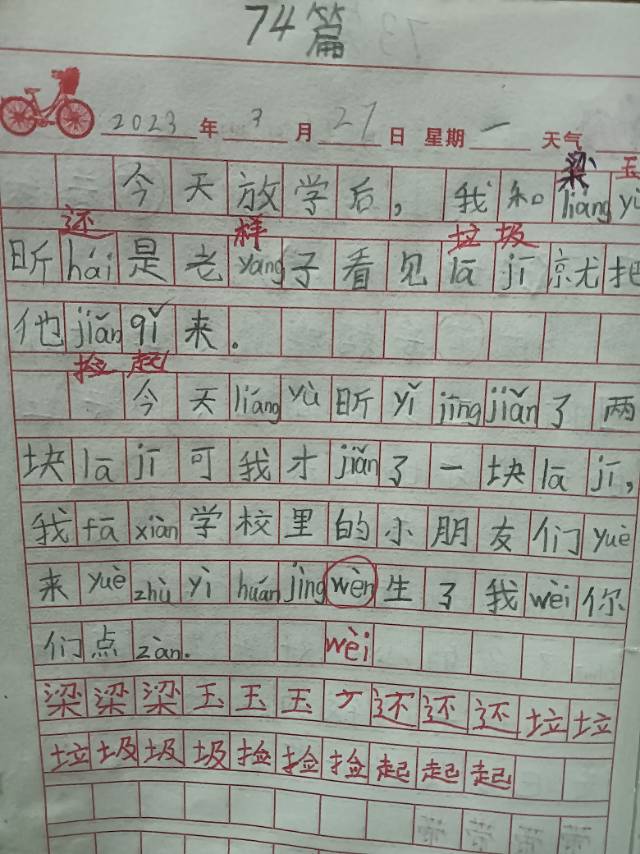 74篇
2023年3月27日 星期一 天气
梁 玉
今天放学后，我和liáng yù
还 样 垃圾
昕hái是老yàng子看见lā jī就把
他jiǎn qǐ来.
捡起
今天liáng yù昕yǐ jīng jiǎn了两
块lā jī可我才jiǎn了一块lā jī,
我fā xiàn学校里的小朋友们yuè
来yuè zhù yì huán jìng wèn生了我wèi你
们点zàn.
wèi
梁梁梁玉玉玉还还还垃垃
垃圾圾圾捡捡捡起起起